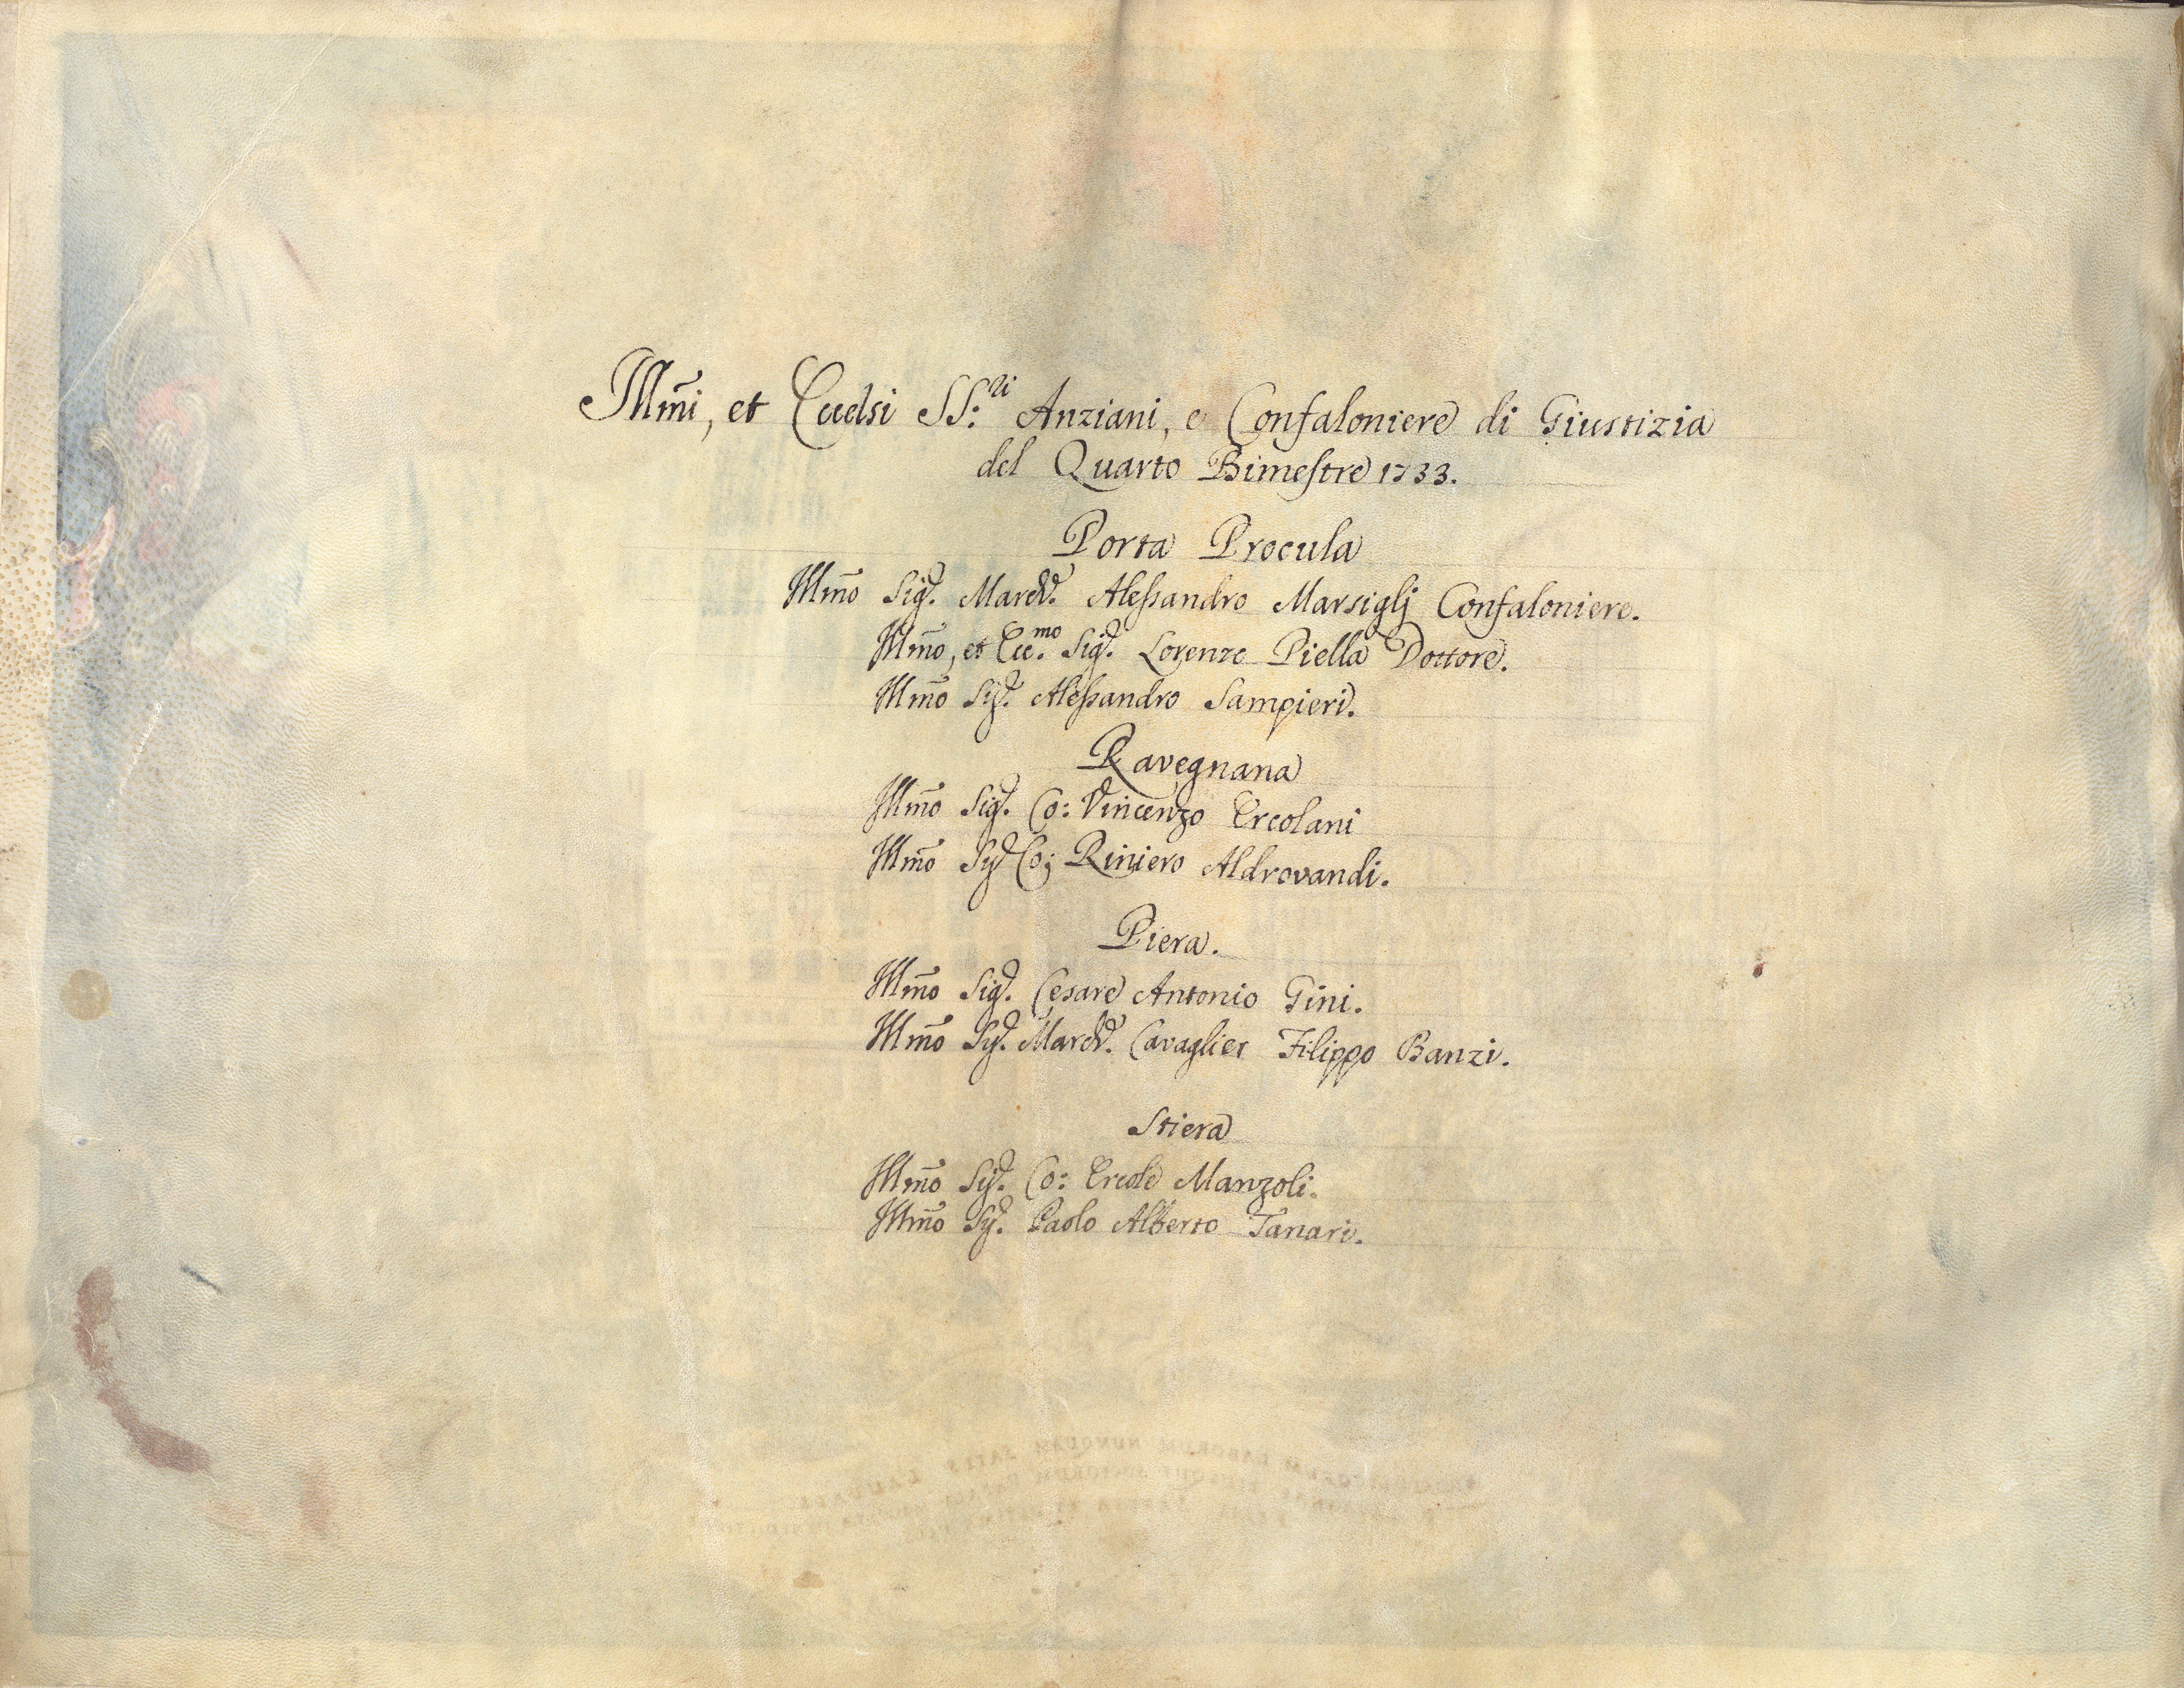 Illm̃i, et Eccelsi SS:ri Anziani, e Confaloniere di Giustizia
del Quarto Bimestre 1733.
Porta Procula
Illm̃o Sigr. March. Alessandro Marsiglj Confaloniere.
Illm̃o, et Ecc.mo Sigr. Lorenzo Piella Dottore.
Illm̃o Sigr. Alessandro Sampieri.
Ravegnana
Illm̃o Sigr. Co: Vincenzo Ercolani
Illm̃o Sigr Co: Riniero Aldrovandi.
Piera.
Illm̃o Sigr. Cesare Antonio Gini.
Illm̃o Sigr. March. Cavaglier Filippo Banzi.
Stiera
Illm̃o Sigr. Co: Ercole Manzoli.
Illm̃o Sigr. Paolo Alberto Tanari.